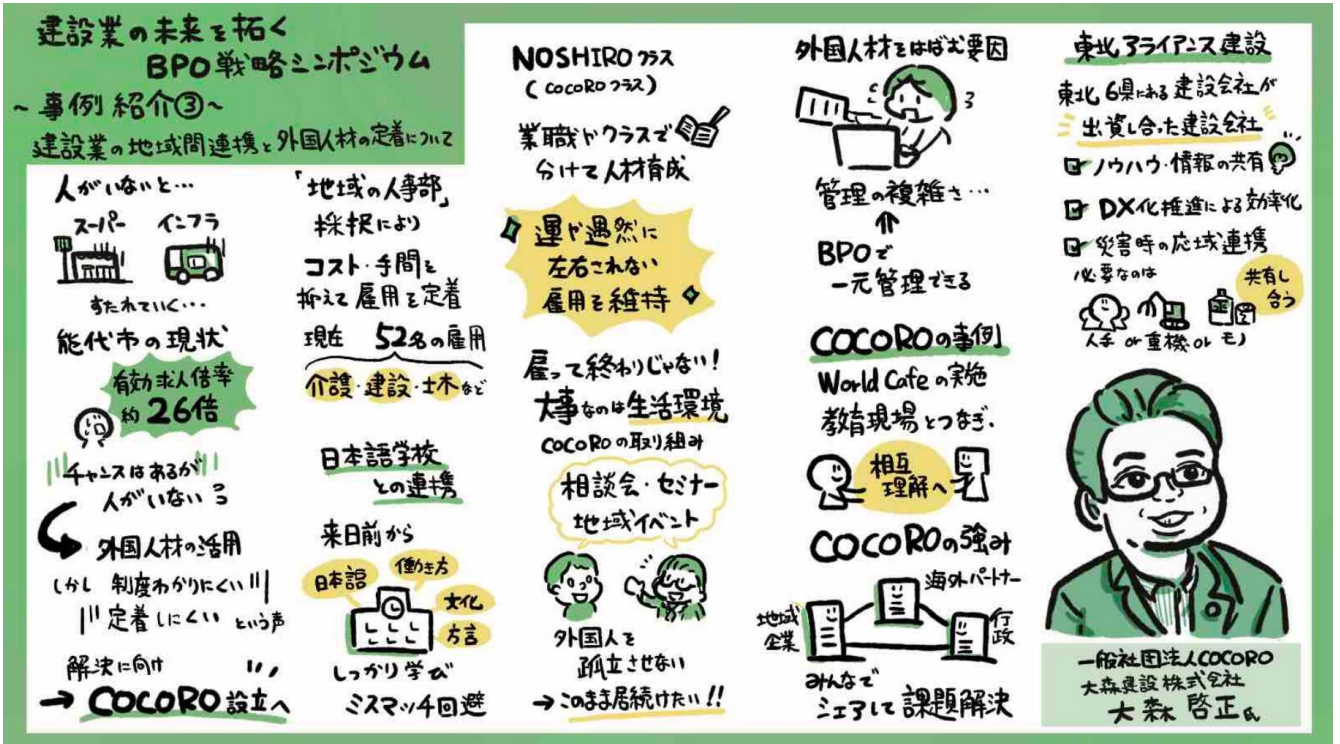 建設業の未来を拓く
BPO戦略シンポジウム
~事例紹介③~
建設業の地域間連携と外国人材の定着について
人がいないと…
スーパー インフラ
すたれていく…
能代市の現状
有効求人倍率
約26倍
チャンスはあるが
人がいない
外国人材の活用
しかし 制度わかりにくい
定着しにくい という声
解決に向け
→COCORO設立へ
「地域の人事部」
採択により
コスト・手間を
抑えて雇用を定着
現在 52名の雇用
介護・建設・土木など
日本語学校
との連携
来日前から
日本語 働き方
文化
方言
しっかり学び
ミスマッチ回避
NOSHIROクラス
(COCOROクラス)
業職やクラスで
分けて人材育成
運や遇然に
左右されない
雇用を維持
雇って終わりじゃない!
大事なのは生活環境
COCOROの取り組み
相談会・セミナー
地域イベント
外国人を
孤立させない
→このまま居続けたい!!
外国人材をはばむ要因
管理の複雑さ…
BPOで
一元管理できる
COCOROの事例
World Cafeの実施
教育現場とつなぎ、
相互
理解へ
COCOROの強み
海外パートナー
地域
企業
行政
みんなで
シェアして課題解決
東北アライアンス建設
東北6県にある建設会社が
出資し合った建設会社
ノウハウ・情報の共有
DX化推進による効率化
災害時の応域連携
必要なのは
共有し
合う
人手or重機orモノ
一般社団法人COCORO
大森建設株式会社
大森啓正氏